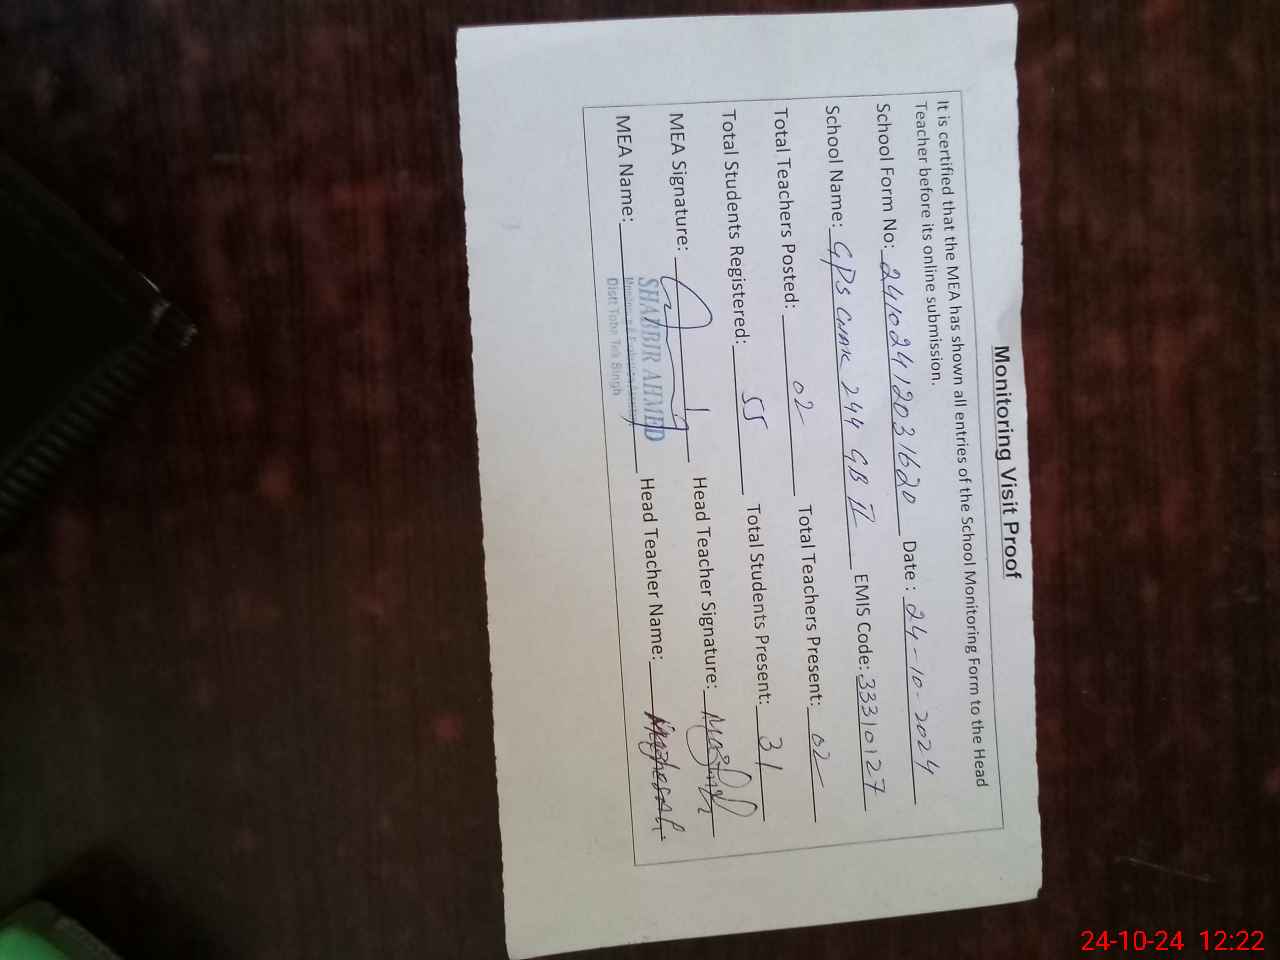 Monitoring Visit Proof
It is certified that the MEA has shown all entries of the School Monitoring Form to the Head
Teacher before its online submission.
School Form No: 24102412031620 Date : 24-10-2024
School Name: GPS CHAK 244 GB II EMIS Code: 33310127
Total Teachers Posted: 02 Total Teachers Present: 02
Total Students Registered: 55 Total Students Present: 31
MEA Signature: Head Teacher Signature:
MEA Name: SHABBIR AHMED Head Teacher Name:
Distt Toba Tek Singh
24-10-24 12:22